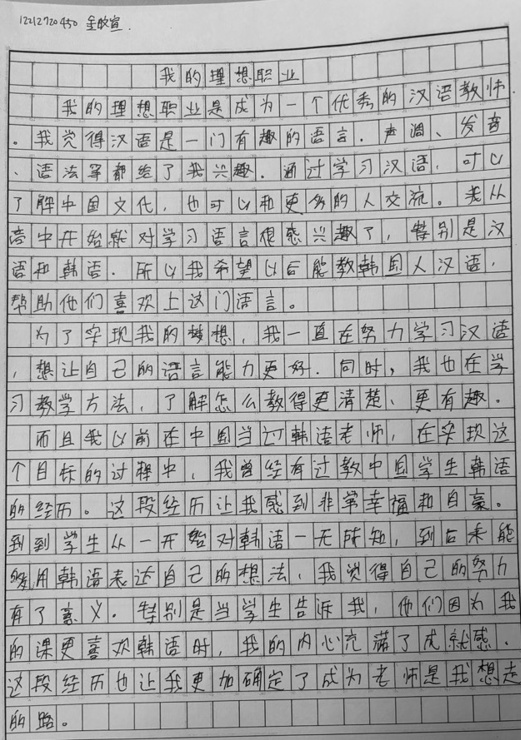 12212720450 金旼宣.
我的理想职业
我的理想职业是成为一个优秀的汉语教师
。我觉得汉语是一门有趣的语言.声调、发音
、语法等都给了我兴趣.通过学习汉语,可以
了解中国文化,也可以和更多的人交流。我从
高中开始就对学习语言很感兴趣了,特别是汉
语和韩语.所以我希望以后能教韩国人汉语,
帮助他们喜欢上这门语言。
为了实现我的梦想,我一直在努力学习汉语
,想让自己的语言能力更好.同时,我也在学
习教学方法,了解怎么教得更清楚、更有趣。
而且我以前在中国当过韩语老师,在实现这
个目标的过程中,我曾经有过教中国学生韩语
的经历。这段经历让我感到非常幸福和自豪。
到到学生从一开始对韩语一无所知,到后来能
够用韩语表达自己的想法,我觉得自己的努力
有了意义.特别是当学生告诉我,他们因为我
的课更喜欢韩语时,我的内心充满了成就感.
这段经历也让我更加确定了成为老师是我想走
的路。